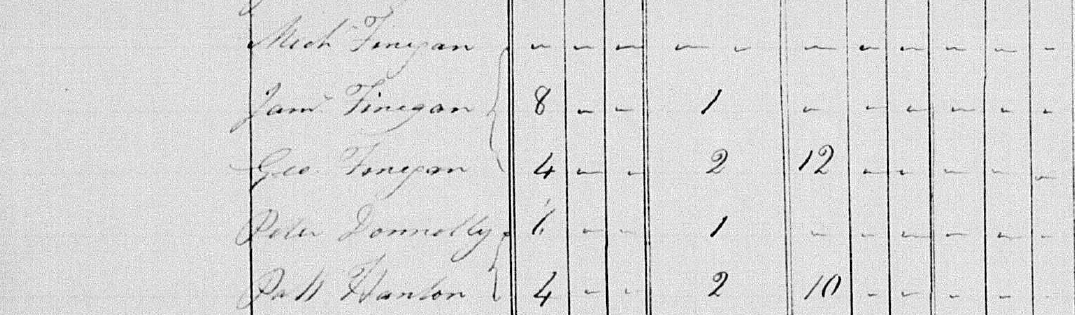 Mich Finegan - - - - - - - - - - -
Jams Finegan 8 - - 1 - - - - - -
Geo Finegan 4 - - 2 12 - - - - -
Peter Donnolly - - 1 - - - - - -
Patt Hanlon 4 - - 2 10 - - - - -